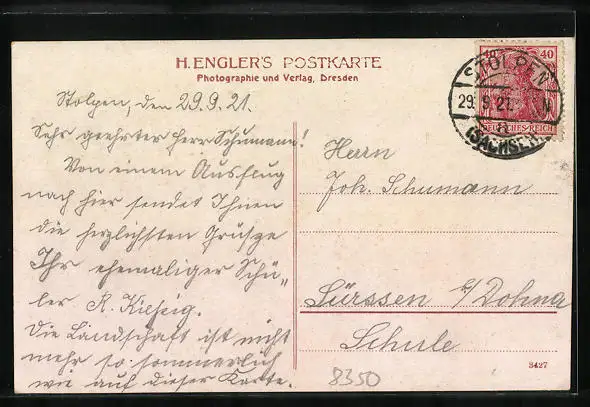 H. ENGLER'S POSTKARTE
Photographie und Verlag, Dresden
Stolpen, den 29.9.21.
Sehr geehrter Herr Schumann!
Von einem Ausflug
nach hier sendet Ihnen
die herzlichsten Grüsze
Ihr ehemaliger Schü„
ler R.
Die Landschaft ist nicht
mehr so sommerlich
wie auf dieser Karte.
Herrn
Joh. Schumann
Sürssen b/Dohna
Schule
8350
3427
40
DEUTSCHES REICH
STOLPEN
29.9.21. N
a
(SACHSEN)